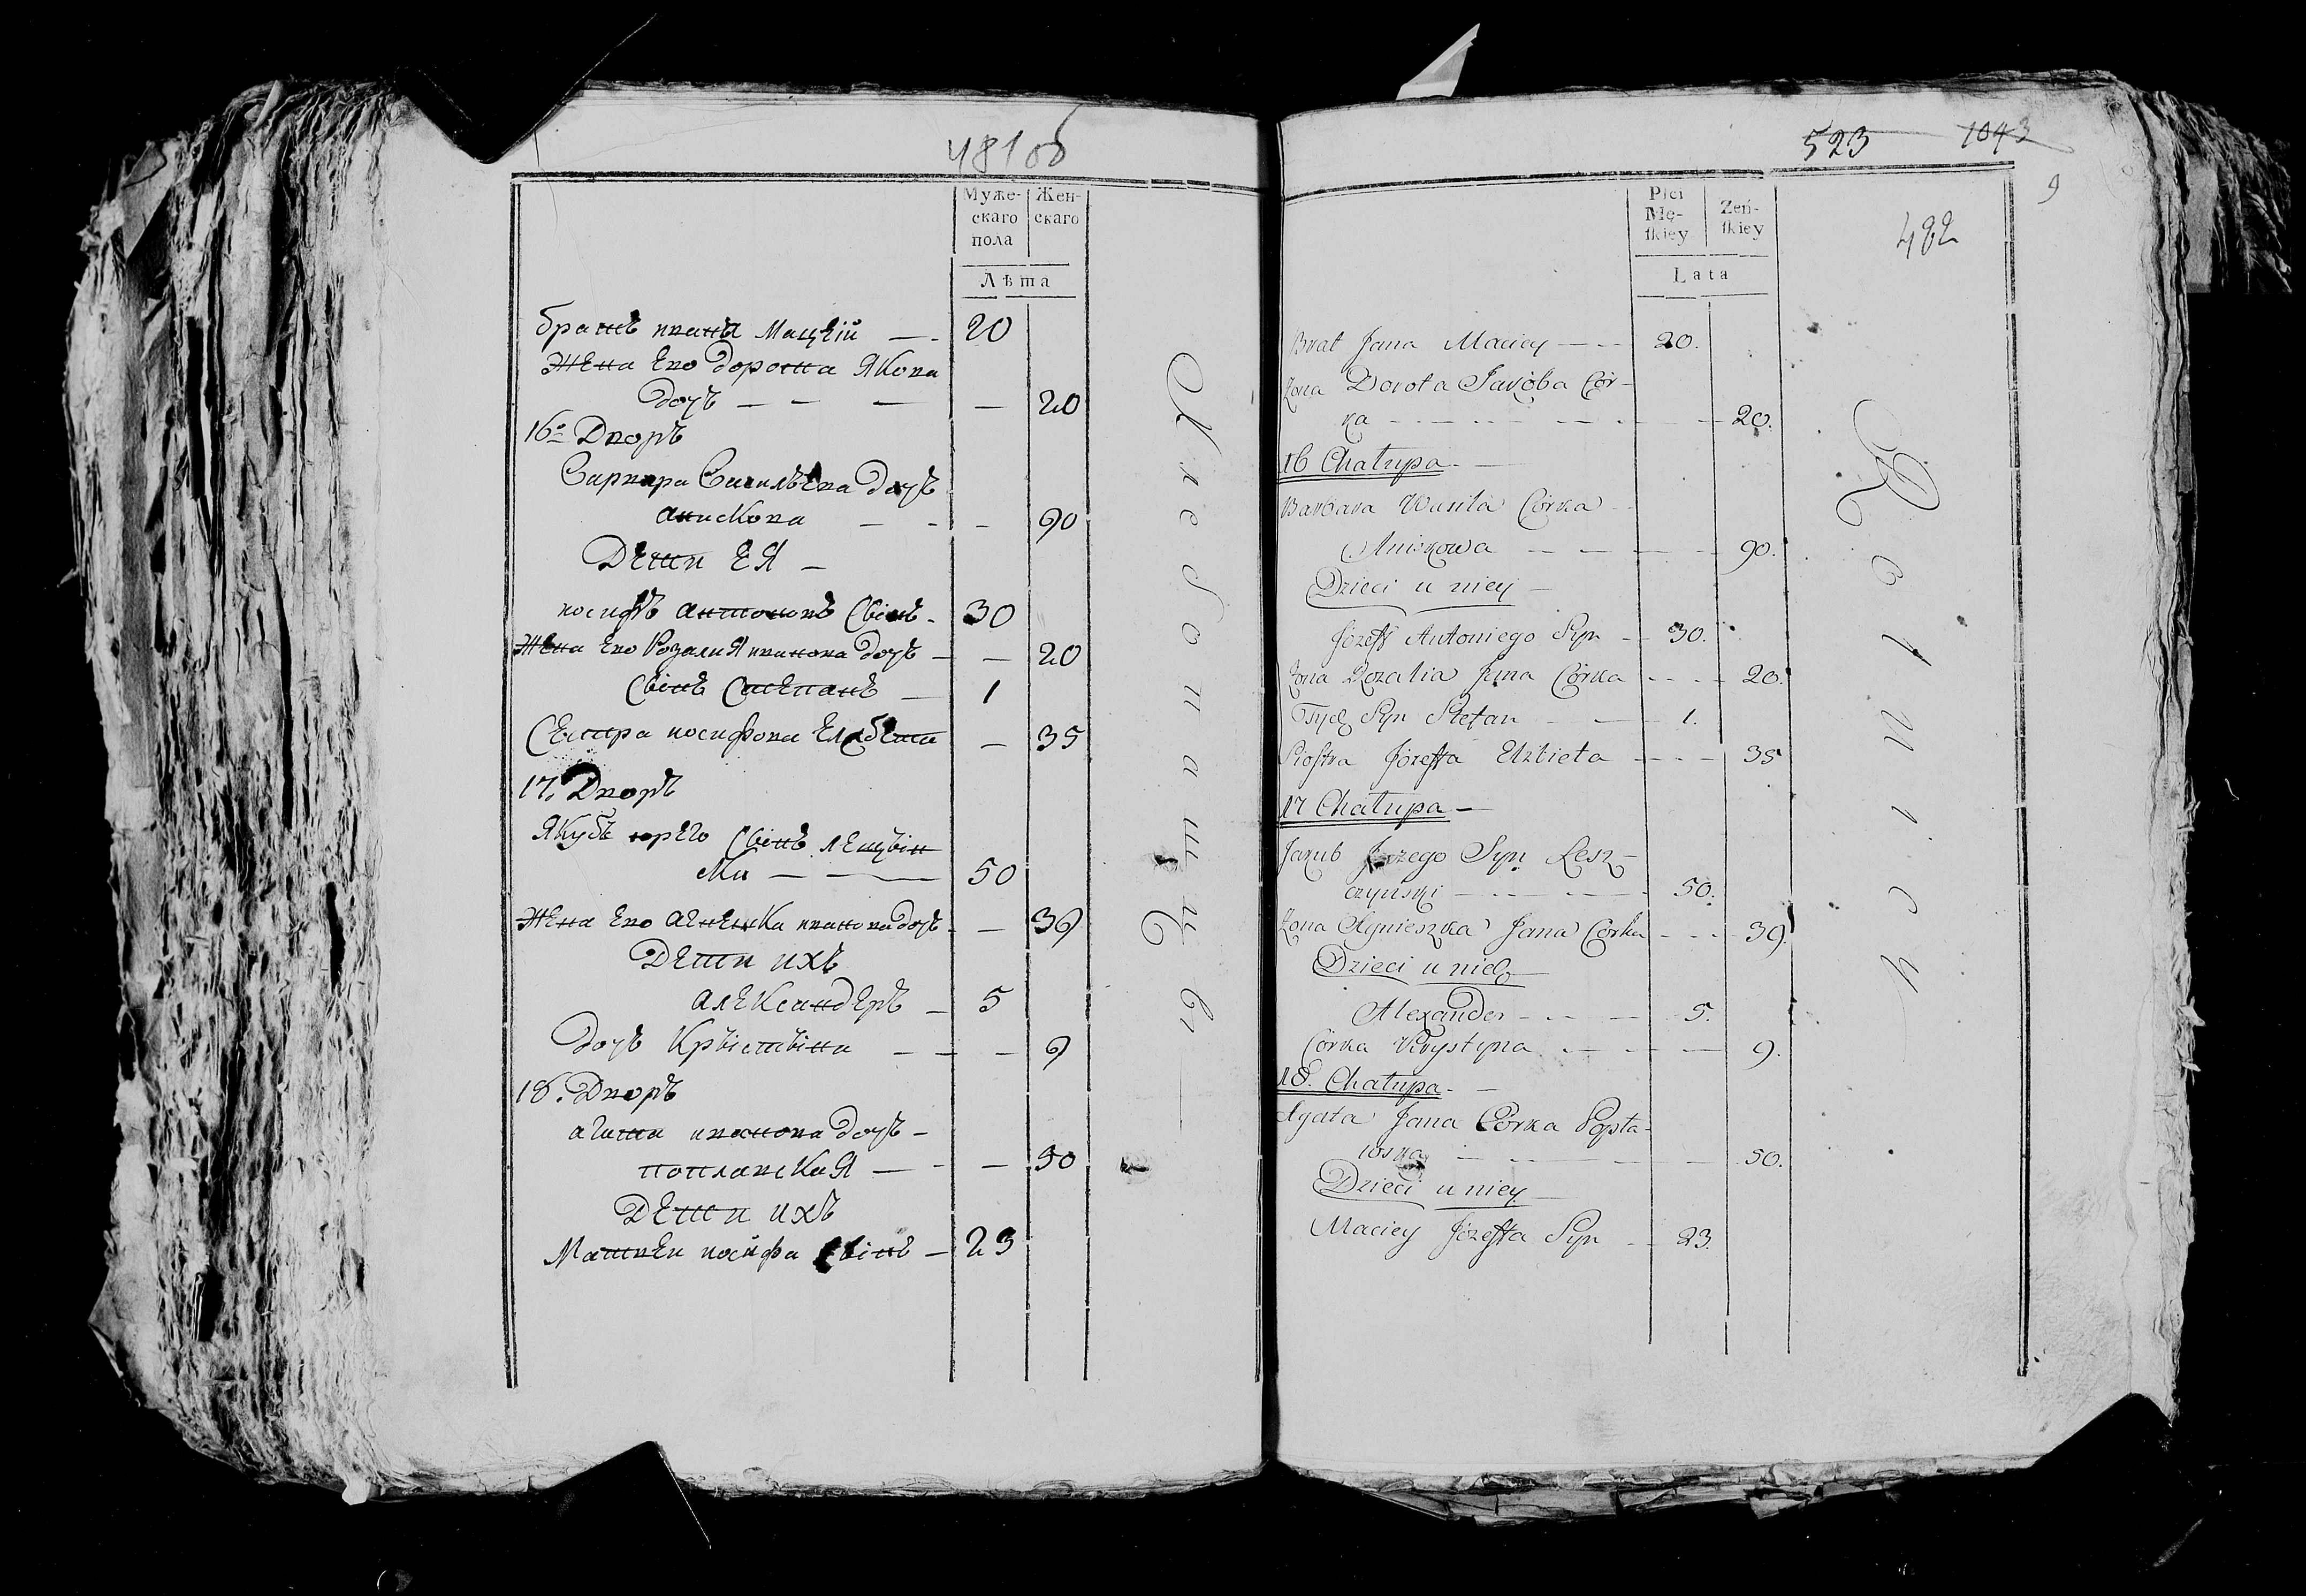 481об
Муже-
скаго
пола
Жен-
скаго
Лѣта
братъ ивана Мацѣй — 20
Жена Его дорота Якова
дочь — — — — 20
16. Дворъ
Варвара Василѣева дочь
анискова — - - 90
Дети Ея —
иосифъ антоновъ Сынъ - 30
Жена Его Розалия иванова дочь — — 20
Сынъ Степанъ — 1
Сестра иосифова Елсбета — 35
17. Дворъ
Якубъ юрего Сынъ лещын
ски — — 50
Жена Его агнешка иванова дочь - — 39
Дети ихъ
александеръ — 5
дочь Крыстына — — — 9
18. Дворъ
агата иванова дочь —
поплавская — - — 50
Дети ихъ
Матвеи иосифа Сынъ — 23
Клебопашцы
523 1043
9
482
Płci
Mę-
ſkiey
Zeń-
ſkiey
Lata
Brat Jana Maciey — — 20.
Zona Dorota Jakóba Cór-
ka — — — — 20.
16 Chałupa. —
Barbara Wasila Córka
Aniskowa — — — — 90.
Dzieci u niey —
Józeff Antoniego Syn — 30.
Zona Rozalia Jana Córka - - - - 20.
Tych Syn Stefan — — 1.
Siostra Józeffa Elzbieta — - - — 35
17 Chałupa —
Jakub Jerzego Syn Lesz-
czynski — — — — 50.
Zona Agnieszka Jana Córka - - - - 39.
Dzieci u nich
Alexander - - — 5.
Córka Krystyna — — — 9.
18. Chałupa. —
Agata Jana Córka Popła-
wska — — — — 50.
Dzieci u niey
Maciey Józeffa Syn — 23.
Rolnicy